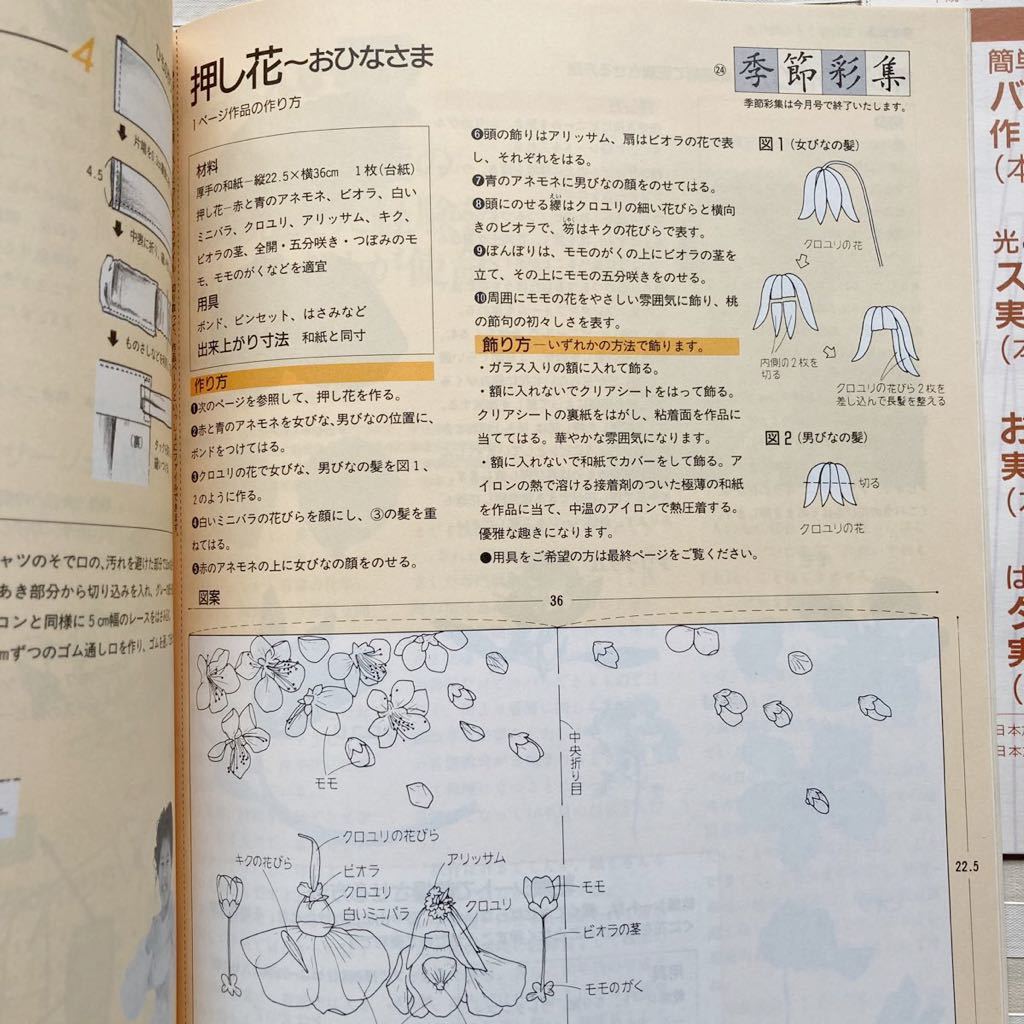 4
4.5
ものさしなどを
(裏)
ャツのそで口の、汚れを避けた部分
あき部分から切り込みを入れ、グレー
コンと同様に5cm幅のレースをはさみ
mずつのゴム通し口を作り、ゴムを通
押し花〜おひなさま
1ページ作品の作り方
㉔ 季節彩集
季節彩集は今月号で終了いたします。
材料
厚手の和紙―縦22.5×横36cm 1枚(台紙)
押し花―赤と青のアネモネ、ビオラ、白い
ミニバラ、クロユリ、アリッサム、キク、
ビオラの茎、全開・五分咲き・つぼみのモ
モ、モモのがくなどを適宜
用具
ボンド、ピンセット、はさみなど
出来上がり寸法 和紙と同寸
作り方
❶次のページを参照して、押し花を作る。
❷赤と青のアネモネを女びな、男びなの位置に、
ボンドをつけてはる。
❸クロユリの花で女びな、男びなの髪を図1、
2のように作る。
❹白いミニバラの花びらを顔にし、③の髪を重
ねてはる。
❺赤のアネモネの上に女びなの顔をのせる。
❻頭の飾りはアリッサム、扇はビオラの花で表
し、それぞれをはる。
❼青のアネモネに男びなの顔をのせてはる。
❽頭にのせる纓はクロユリの細い花びらと横向
きのビオラで、笏はキクの花びらで表す。
❾ぼんぼりは、モモのがくの上にビオラの茎を
立て、その上にモモの五分咲きをのせる。
❿周囲にモモの花をやさしい雰囲気に飾り、桃
の節句の初々しさを表す。
飾り方―いずれかの方法で飾ります。
・ガラス入りの額に入れて飾る。
・額に入れないでクリアシートをはって飾る。
クリアシートの裏紙をはがし、粘着面を作品に
当ててはる。華やかな雰囲気になります。
・額に入れないで和紙でカバーをして飾る。ア
イロンの熱で溶ける接着剤のついた極薄の和紙
を作品に当て、中温のアイロンで熱圧着する。
優雅な趣きになります。
●用具をご希望の方は最終ページをご覧ください。
図1(女びなの髪)
クロユリの花
内側の2枚を
切る
クロユリの花びら2枚を
差し込んで長髪を整える
図2(男びなの髪)
切る
クロユリの花
図案
36
22.5
中央折り目
モモ
クロユリの花びら
キクの花びら
ビオラ
クロユリ
白いミニバラ
アリッサム
クロユリ
モモ
ビオラの茎
モモのがく
簡単
バ
作
(本
光
ス
実
(本
お
実
は
タ
実
(
日本
日本